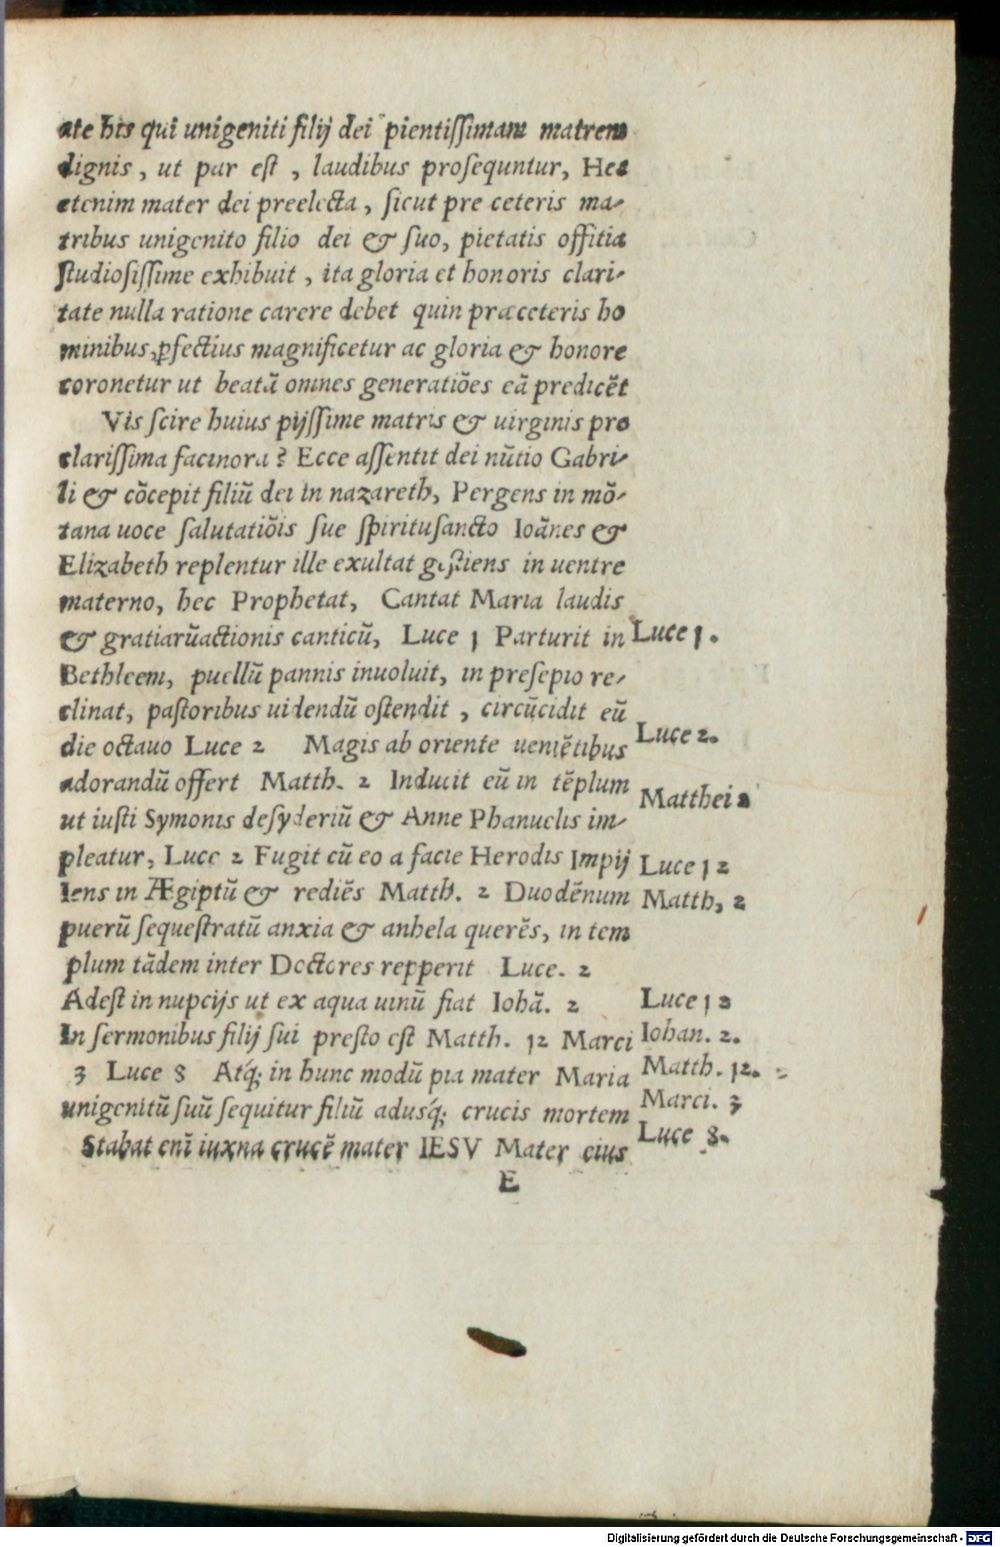 ate his qui unigeniti filij dei pientissimam matrem
dignis, ut par est, laudibus prosequntur, Hec
etenim mater dei preelecta, sicut pre ceteris ma-
tribus unigenito filio dei & suo, pietatis offitia
studiosissime exhibuit, ita gloria et honoris clari-
tate nulla ratione carere debet quin præceteris ho
minibus, ꝑfectius magnificetur ac gloria & honore
coronetur ut beatā omnes generatiōes eā predicēt
Vis scire huius pijssime matris & uirginis pre
clarissima facinora? Ecce assentit dei nūtio Gabri-
li & cōcepit filiū dei in nazareth, Pergens in mō-
tana uoce salutatiōis sue spiritusancto Ioānes &
Elizabeth replentur ille exultat gestiens in uentre
materno, hec Prophetat, Cantat Maria laudis
& gratiarūactionis canticū, Luce 1 Parturit in
Luce 1.
Bethleem, puellū pannis inuoluit, in presepio re-
clinat, pastoribus uidendū ostendit, circūcidit eū
die octauo Luce 2 Magis ab oriente ueniētibus
Luce 2.
adorandū offert Matth. 2 Inducit eū in tēplum
Matthei 2
ut iusti Symonis desyderiū & Anne Phanuelis im-
pleatur, Luce 2 Fugit cū eo a facie Herodis Impij
Luce 12
Iens in Ægiptū & rediēs Matth. 2 Duodēnum
Matth, 2
puerū sequestratū anxia & anhela querēs, in tem
plum tādem inter Doctores repperit Luce. 2
Adest in nupcijs ut ex aqua uinū fiat Iohā. 2
Luce 12
In sermonibus filij sui presto est Matth. 12 Marci
Iohan. 2.
3 Luce 8 Atq; in hunc modū pia mater Maria
Matth. 12.
unigenitū suū sequitur filiū adusq́; crucis mortem
Marci. 3
Stabat enī iuxna crucē mater IESV Mater eius
Luce 8.
E
Digitalisierung gefördert durch die Deutsche Forschungsgemeinschaft - DFG